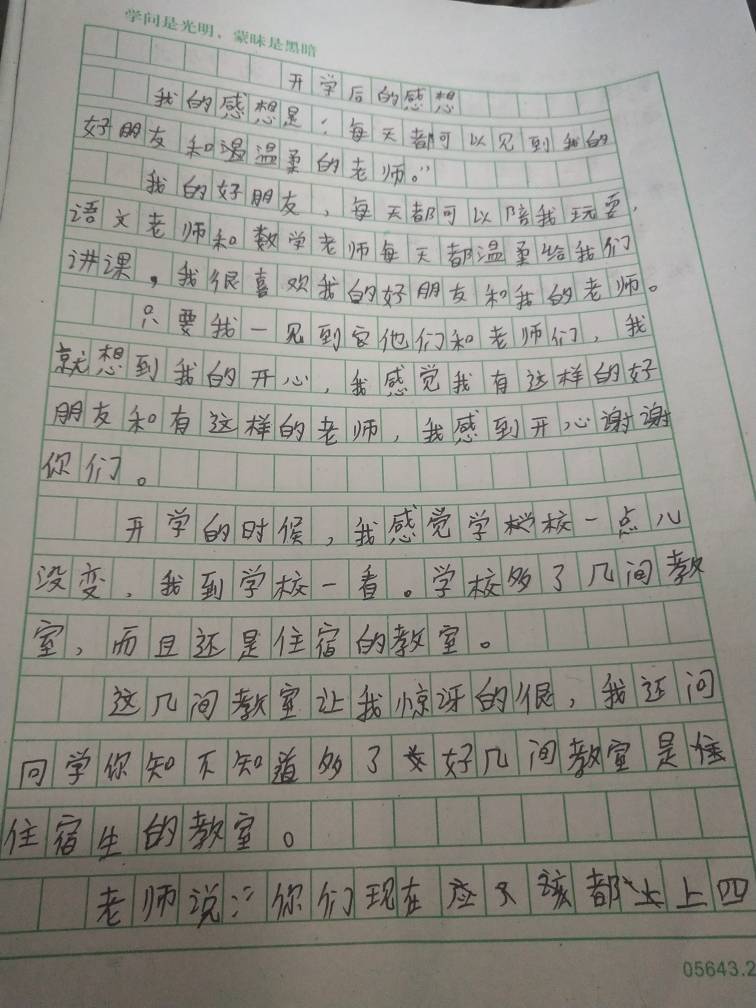 学问是光明，蒙昧是黑暗
开学后的感想
我的感想是：每天都可以见到我的
好朋友和温温柔的老师。"
我的好朋友，每天都可以陪我玩耍，
语文老师和数学老师每天都温柔给我们
讲课，我很喜欢我的好朋友和我的老师。
只要我一见到它他们和老师们，我
就想到我的开心，我感觉我有这样的好
朋友和有这样的老师，我感到开心谢谢
你们。
开学的时候，我感觉学校一点儿
没变，我到学校一看。学校多了几间教
室，而且还是住宿的教室。
这几间教室让我惊讶的很，我还问
同学你知不知道多了好几间教室是住
住宿生的教室。
老师说："你们现在应该都上四
05643.2